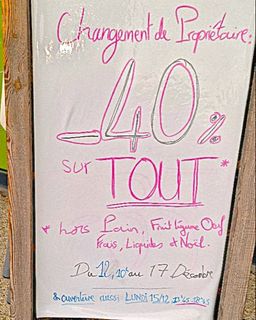 Changement de Propriétaire:
-40%
sur
TOUT*
* hors Pain, Fruit légume Oeuf
Frais, Liquides et Noël.
Du 12, au 17 Décembre
& ouverture aussi LUNDI 15/12